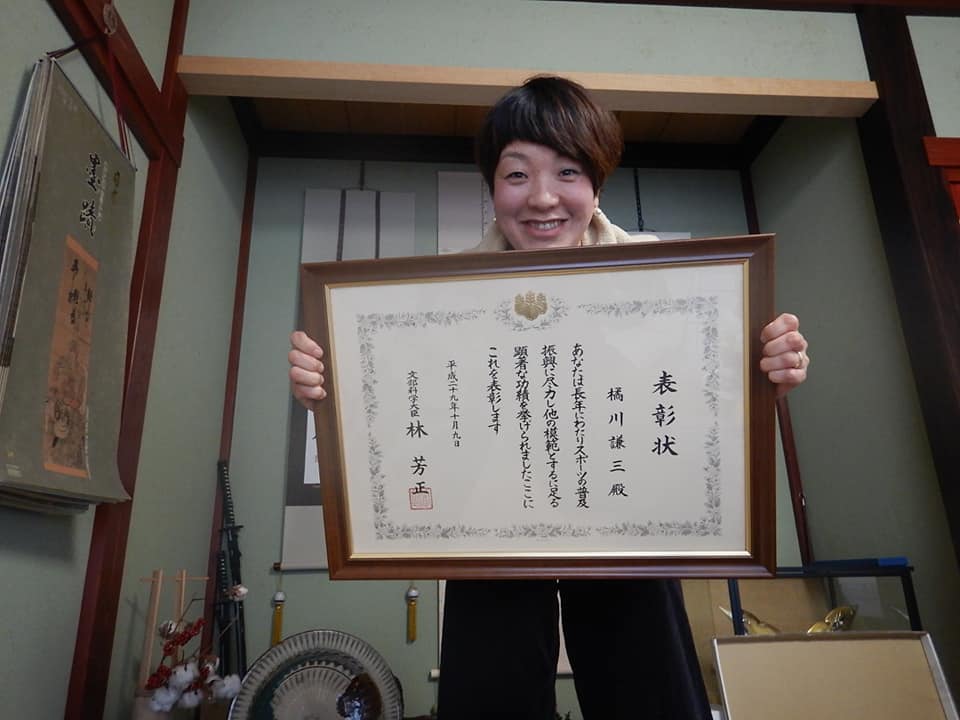 表彰状
橘川謙三殿
あなたは長年にわたりスポーツの普及
振興に尽力し他の模範とするに足る
顕著な功績を挙げられましたここに
これを表彰します
平成二十九年十月九日
文部科学大臣 林芳正
墨蹟